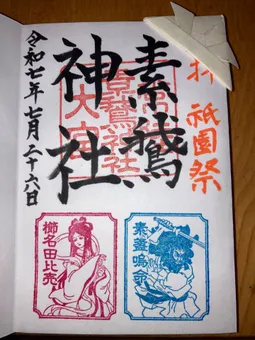 拝 祇園祭
素鵞
神社
令和七年七月二十六日
素鵞社
大宮
素盞嗚命
櫛名田比売